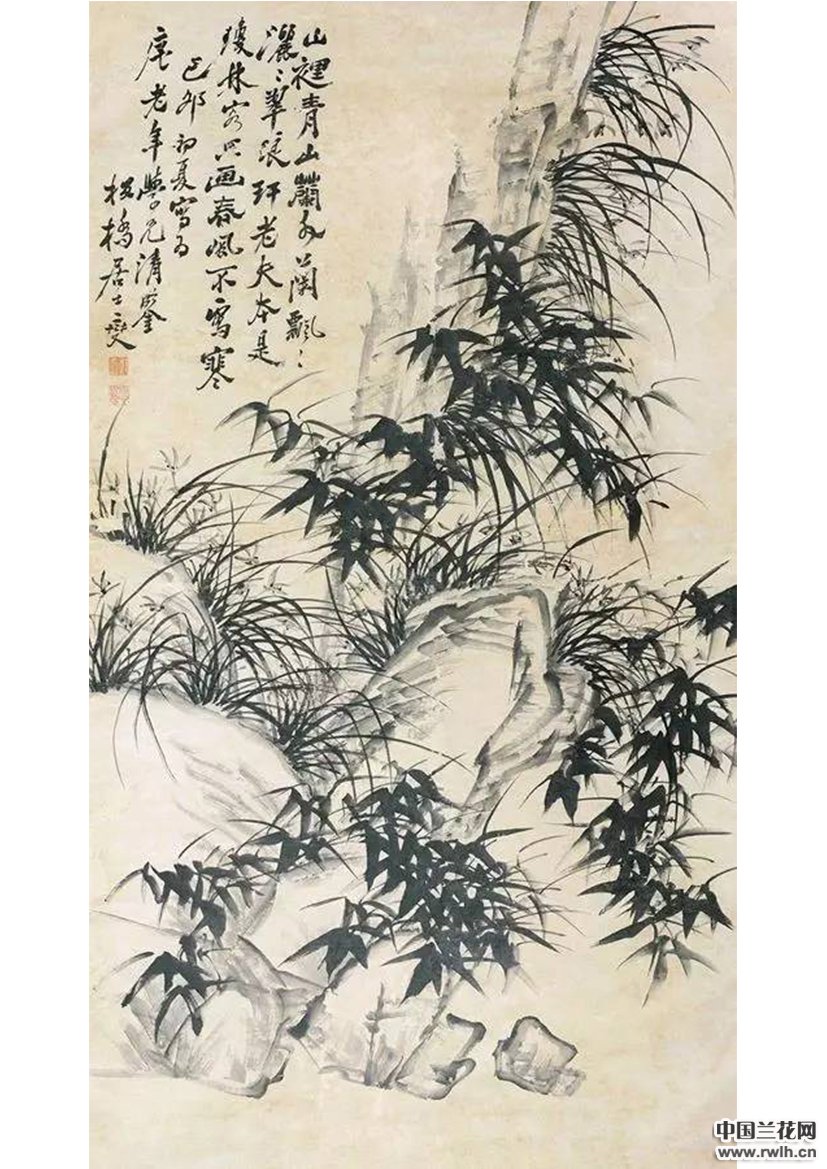 山裡青山蘭外蘭飄〻
灑〻翠琅玕老夫本是
瓊林客只画春風不寫寒
己卯初夏寫為
庚老年學兄清鑒
板橋居士燮
中国兰花网
www.rwlh.cn